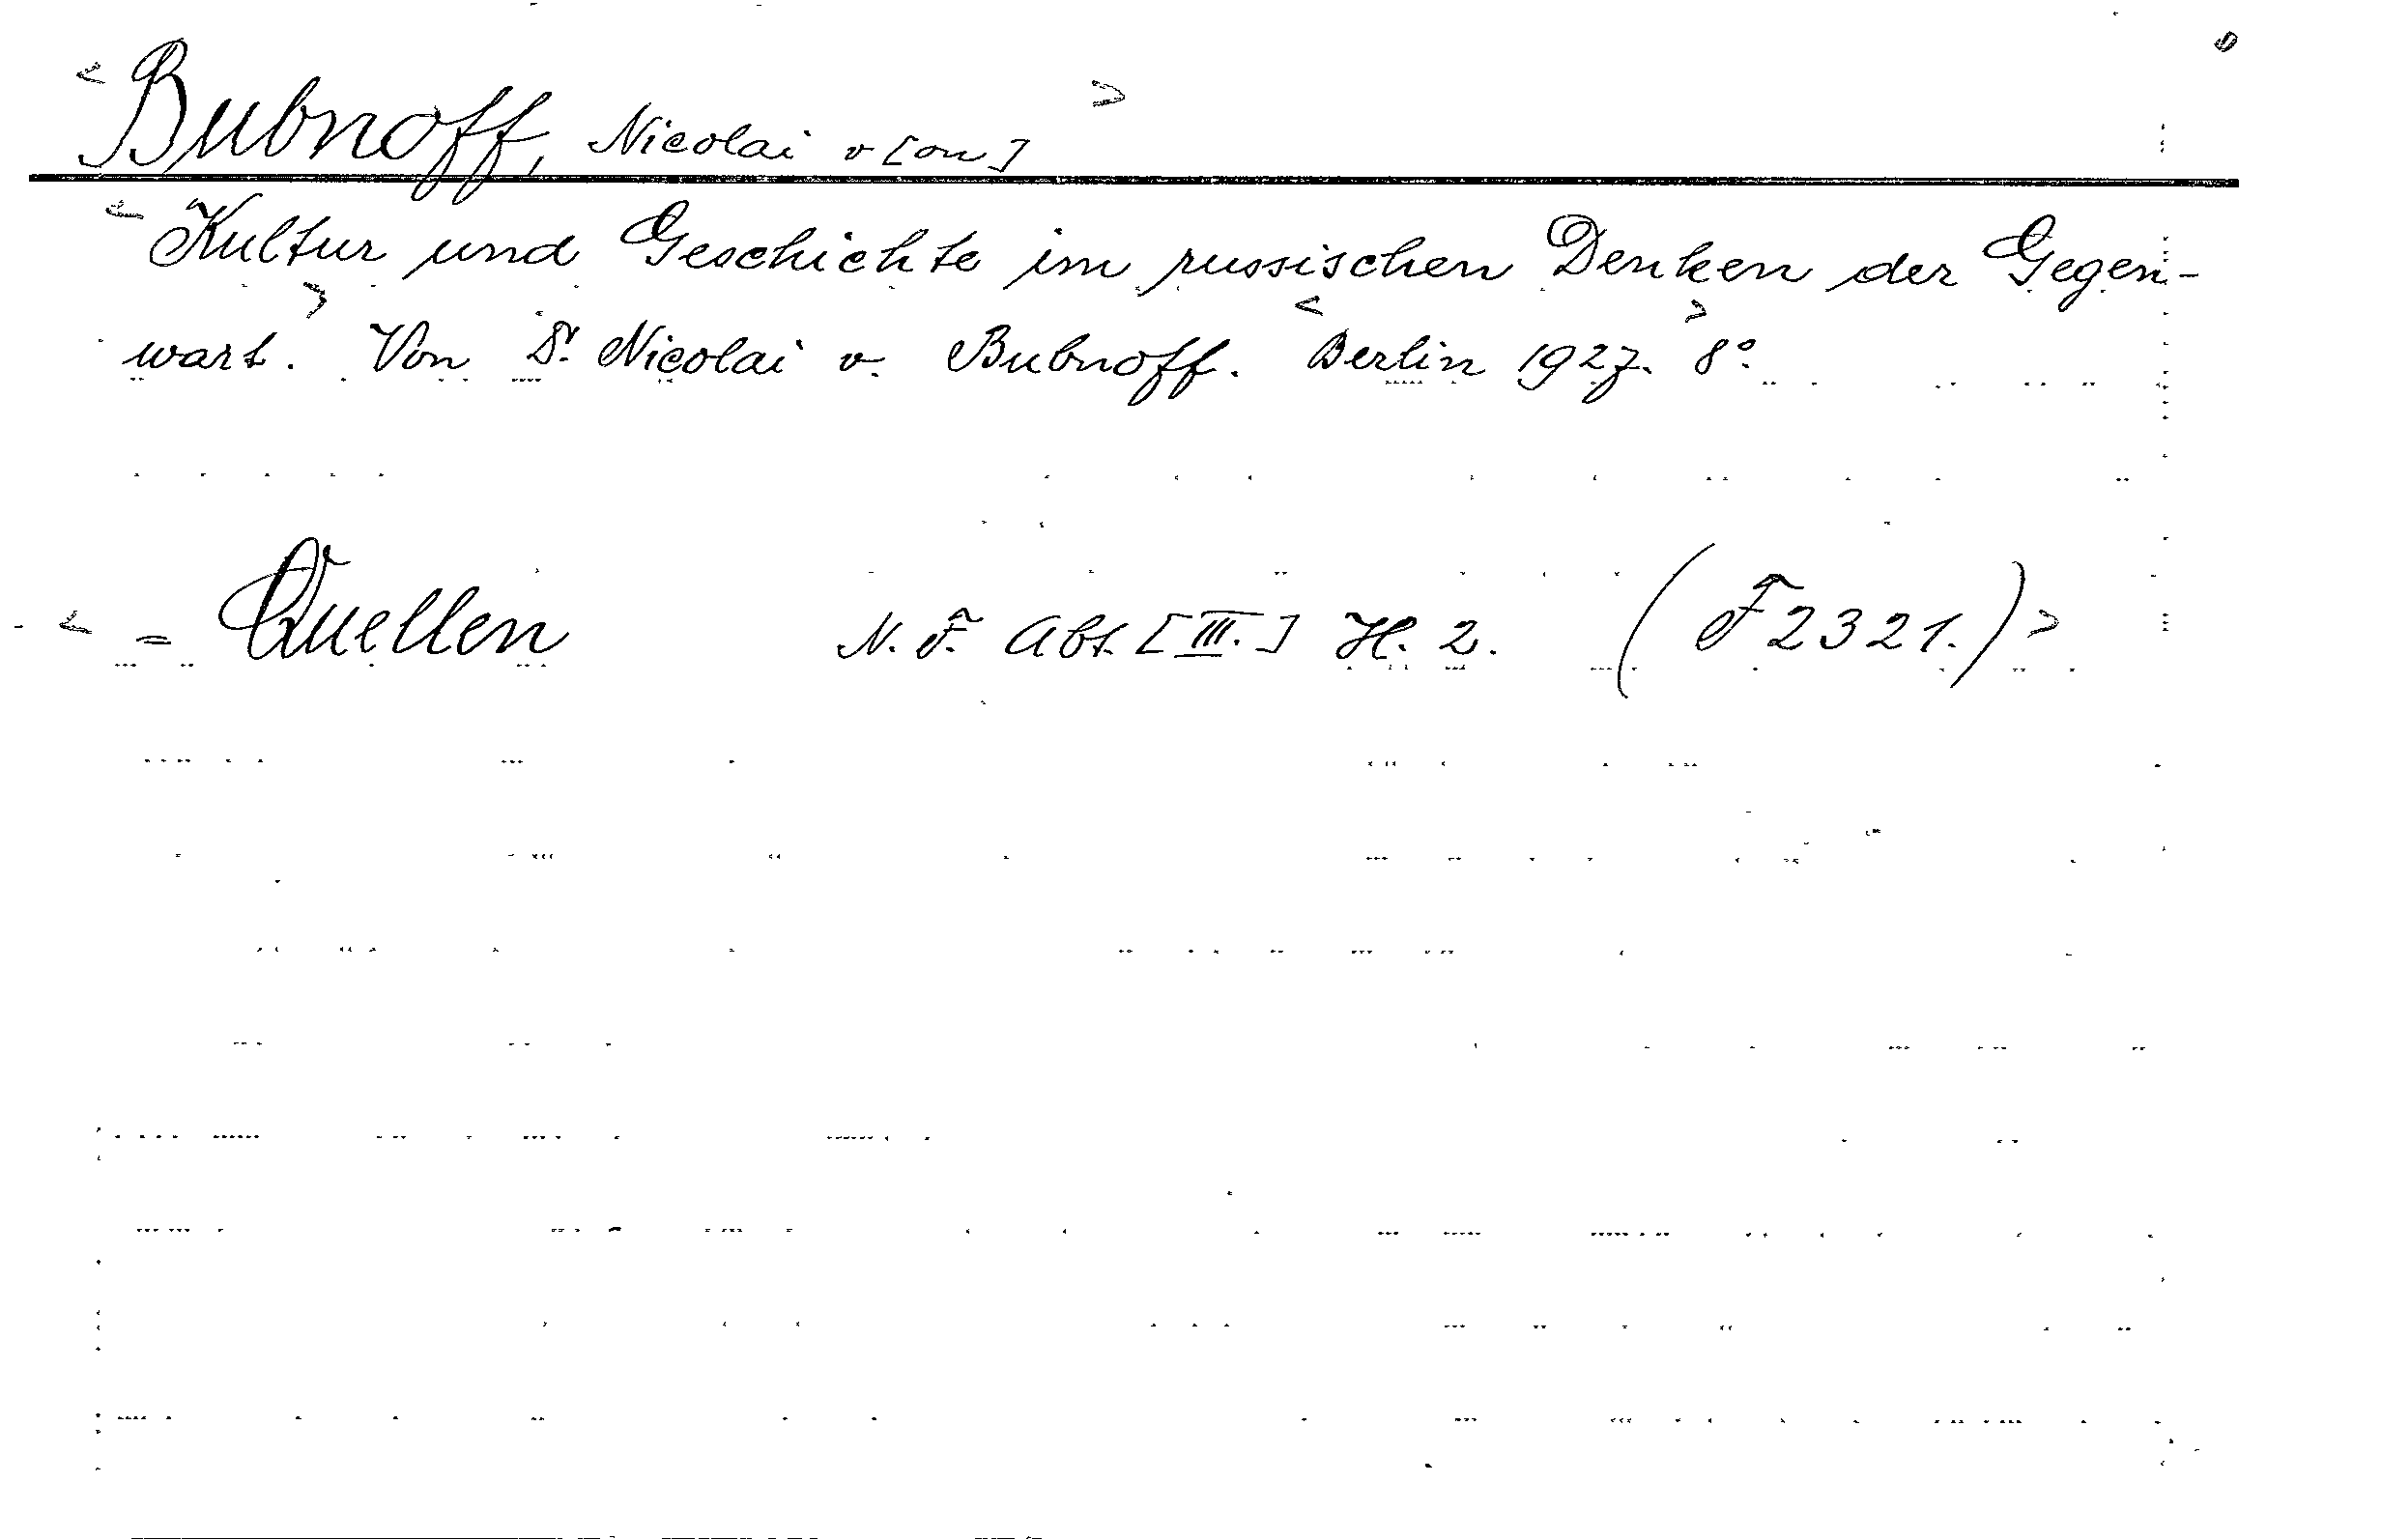 < Bubnoff, Nicolai v[on] >
< Kultur und Geschichte im russischen Denken der Gegen-
wart. > Von Dr. Nicolai v. Bubnoff. < Berlin 1927. > 8°.
< = Quellen N. F. Abt. [III.] H. 2. (F 2321.) >